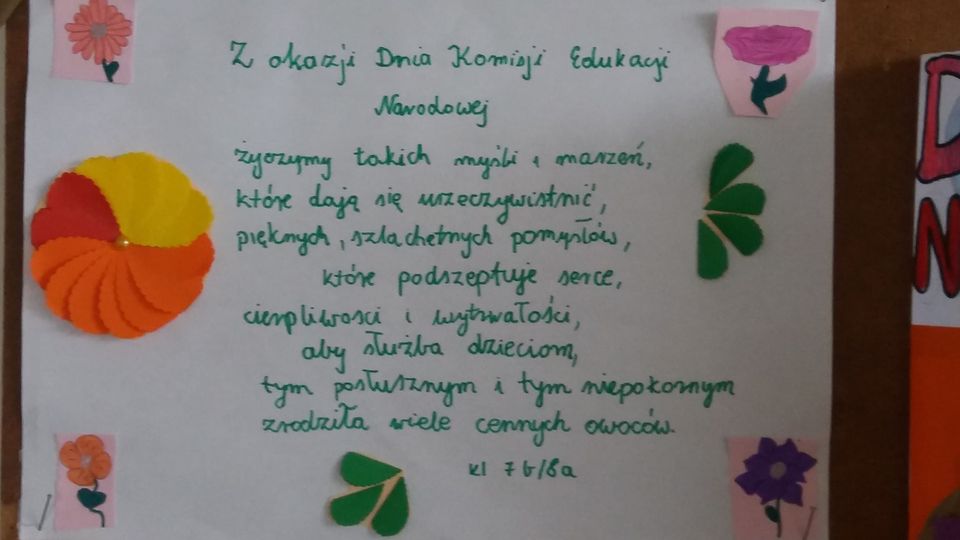 Z okazji Dnia Komisji Edukacji
Narodowej
życzymy takich myśli i marzeń,
które dają się urzeczywistnić,
pięknych, szlachetnych pomysłów,
które podszeptuje serce,
cierpliwości i wytrwałości,
aby służba dzieciom,
tym posłusznym i tym niepokornym
zrodziła wiele cennych owoców.
kl 7b/8a
D
N